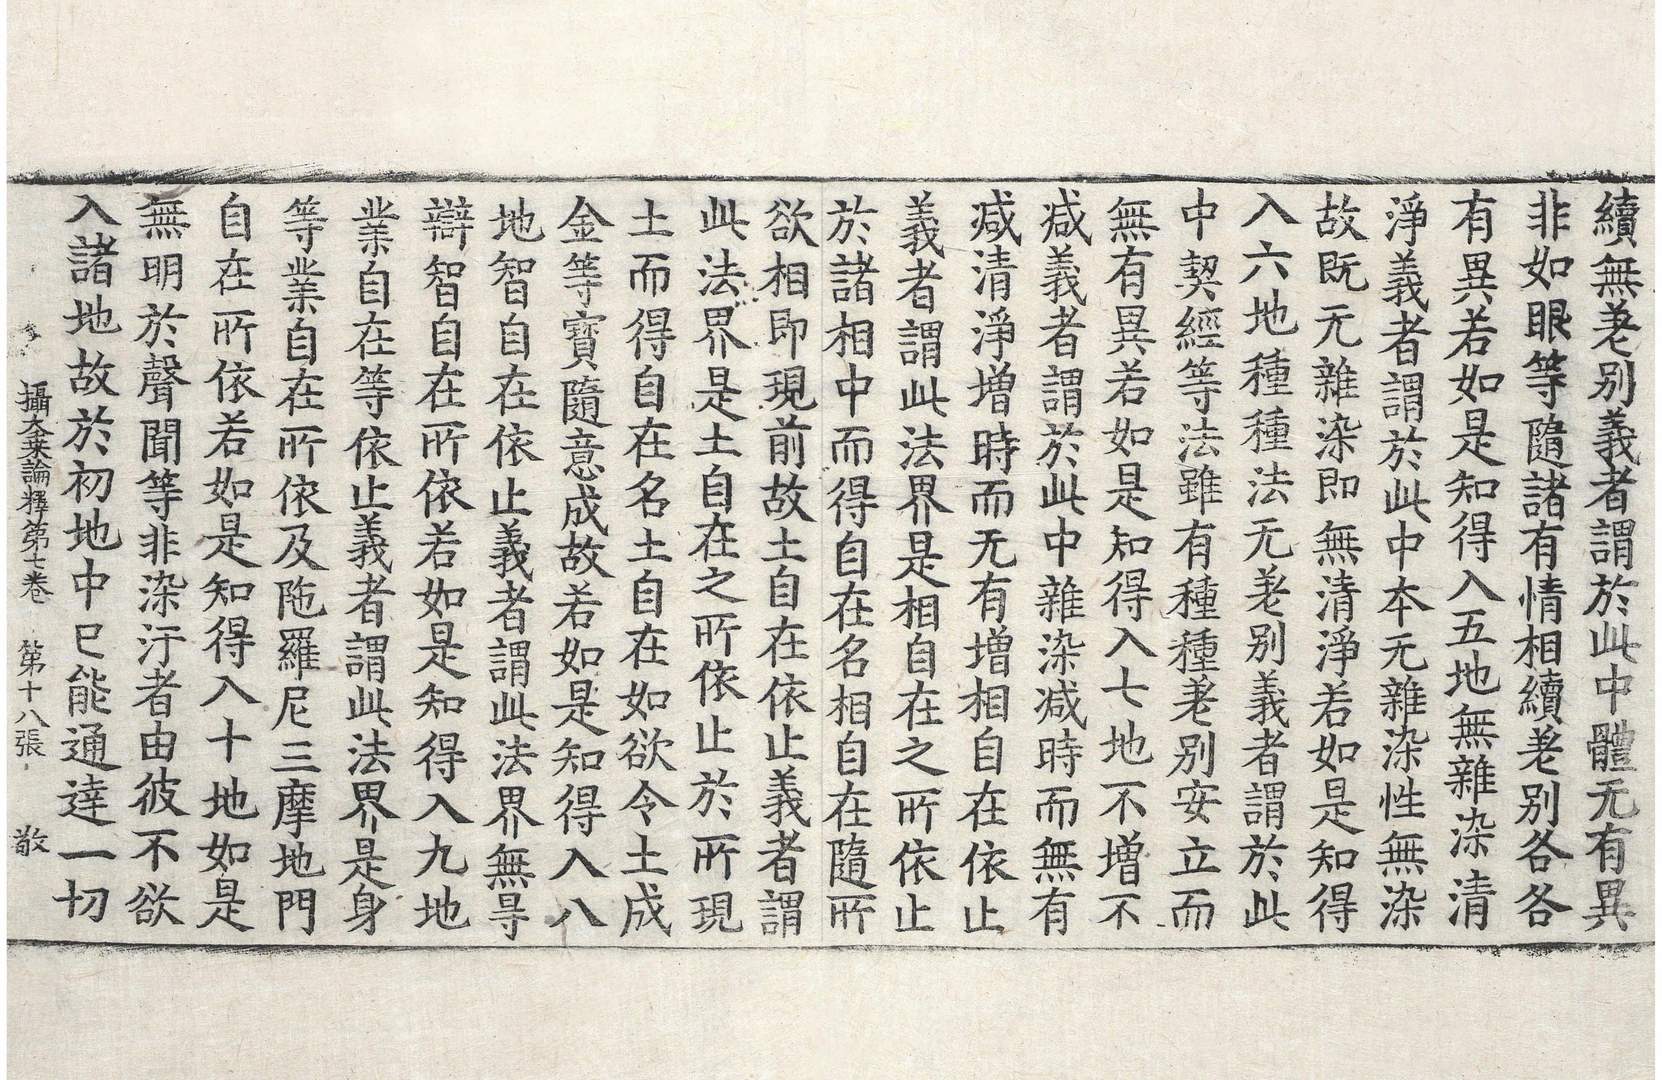 續無差別義者謂於此中體无有異
非如眼等隨諸有情相續差別各各
有異若如是知得入五地無雜染清
淨義者謂於此中本无雜染性無染
故既无雜染即無清淨若如是知得
入六地種種法无差別義者謂於此
中契經等法雖有種種差別安立而
無有異若如是知得入七地不增不
減義者謂於此中雜染減時而無有
減清淨增時而无有增相自在依止
義者謂此法界是相自在之所依止
於諸相中而得自在名相自在隨所
欲相即現前故土自在依止義者謂
此法界是土自在之所依止於所現
土而得自在名土自在如欲令土成
金等寶隨意成故若如是知得入八
地智自在依止義者謂此法界無㝵
辯智自在所依若如是知得入九地
業自在等依止義者謂此法界是身
等業自在所依及陁羅尼三摩地門
自在所依若如是知得入十地如是
無明於聲聞等非染汙者由彼不欲
入諸地故於初地中已能通達一切
攝大乗論釋第七卷 第十八張 敬